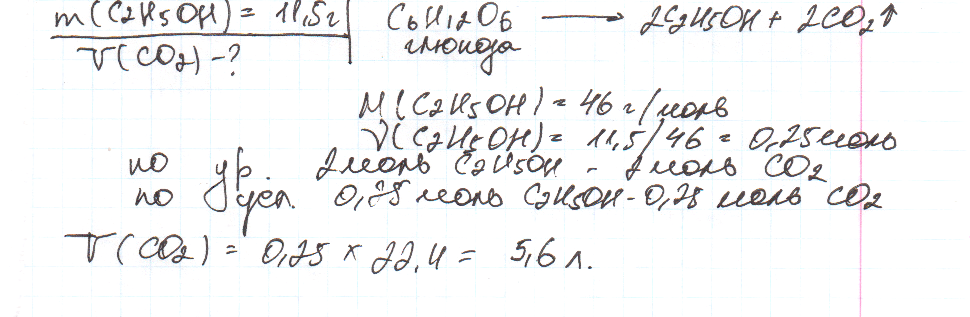 m(C2H5OH) = 11,5г C6H12O6 → 2C2H5OH + 2CO2↑
V(CO2) -? глюкоза
M(C2H5OH) = 46 г/моль
ν(C2H5OH) = 11,5/46 = 0,25моль
по ур. 2моль C2H5OH - 2моль CO2
по усл. 0,25 моль C2H5OH - 0,25 моль CO2
V(CO2) = 0,25 × 22,4 = 5,6 л.